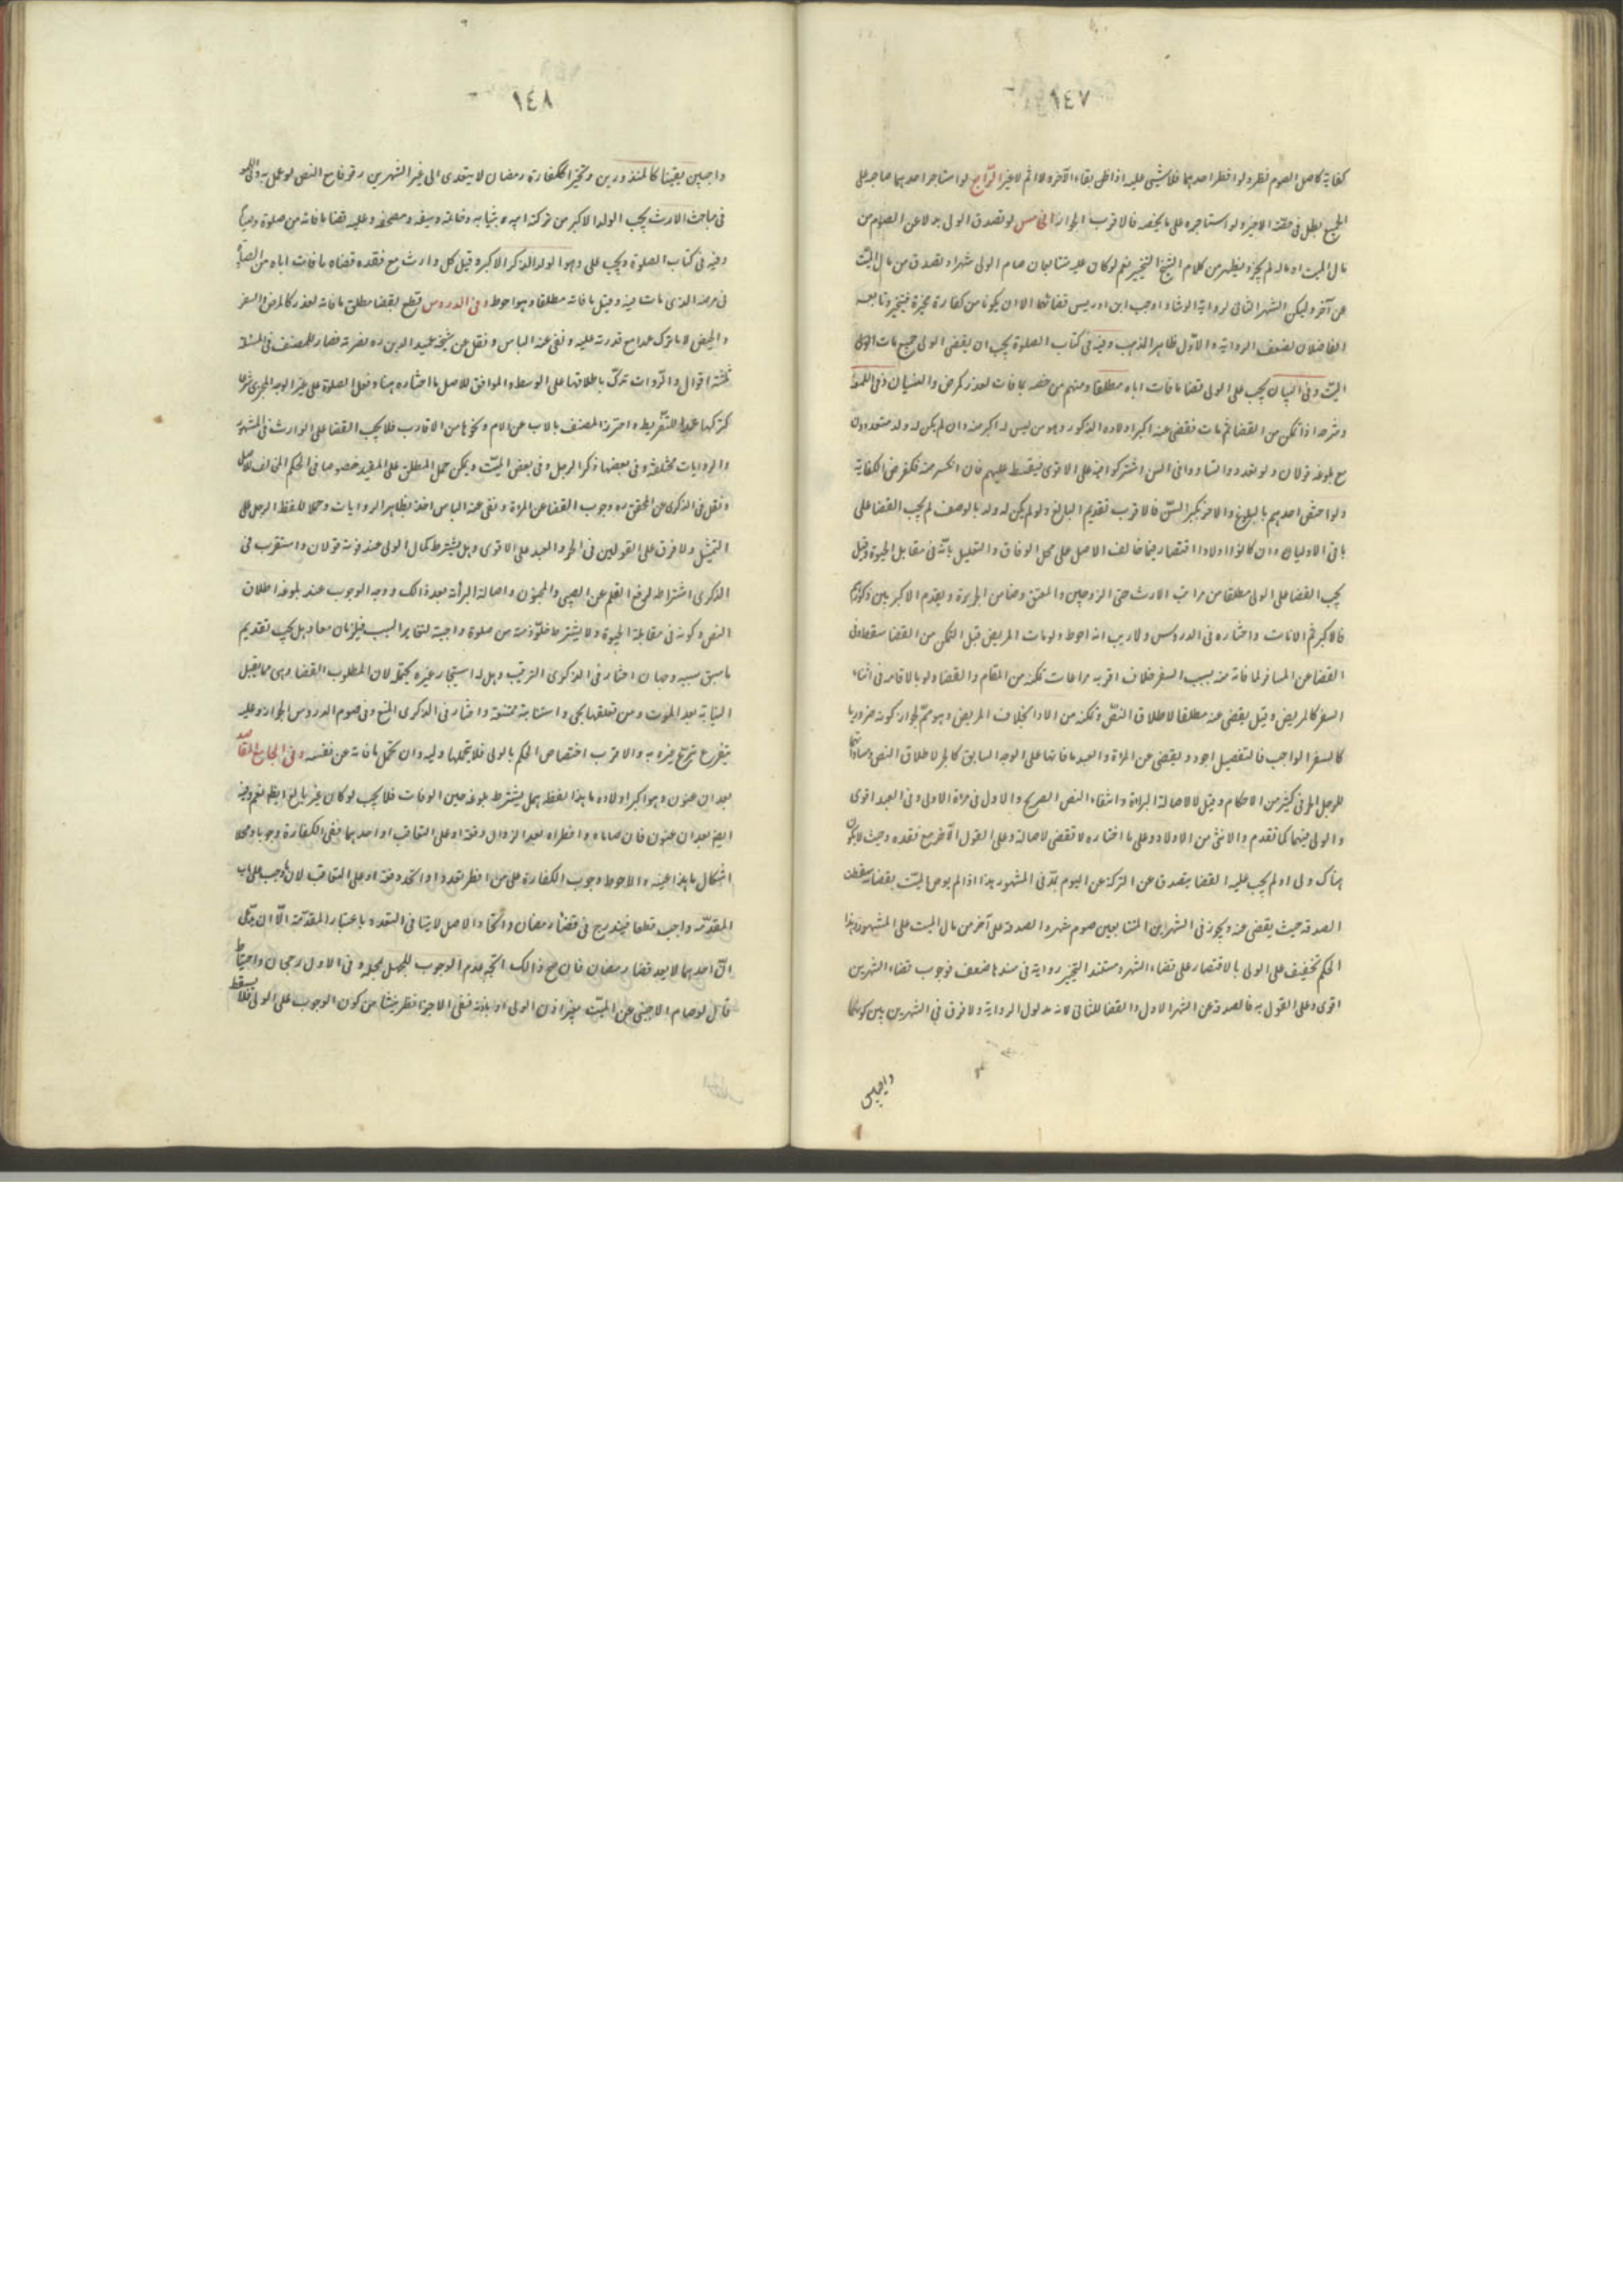 ١٤٧
كفاية كاصل الصوم نظر ولو افطر احدهما فلا شيء عليه اذا ظن بقاء الآخر ولا اثم لا غير الرّابع لو استاجر احدهما صاحبه على
الجميع بطل في حقه الاجير ولو استاجره على ما يخصه فالاقرب الجواز الخامس لو تصدق الولي بدلا عن الصوم من
مال الميت او ماله لم يجز ويظهر من كلام الشيخ التخيير نعم لو كان عليه متتابعان صام الولي شهرا وتصدق من مال الميّت
عن آخر وليكن الشهر الثاني لرواية الوشاء واوجب ابن ادريس قضائهما الا ان يكونا من كفارة مخيرة فيتخير وتابعه
الفاضلان لضعف الرواية والاوّل ظاهر المذهب وفيه في كتاب الصلوة يجب ان يقضي الولي جميع ما فات
الميّت وفي البيان يجب على الولي قضا ما فات اباه مطلقا ومنهم من خصه بما فات لعذر كمرض والعنيان وفي اللمعة
وشرحه اذا تمكن من القضا ثم مات فقضى عنه اكبر اولاده الذكور وهو من ليس له اكبر منه وان لم يكن له ولد متعددون
مع بلوغه قولان ولو تعددوا وتساووا في السن اشتركوا فيه على الاقوى فيقسط عليهم فان انكسر منه فكفرض الكفاية
ولو اختص احدهم بالبلوغ والآخر بكبر السّن فالاقرب تقديم البالغ ولو لم يكن له ولد بالوصف لم يجب القضا على
باقي الاولياء وان كانوا اولادا اقتصارا فيما خالف الاصل على محل الوفاق والتعليل بانّه في مقابل الحبوة وقيل
يجب القضا على الولي مطلقا من مراتب الارث حتى الزوجين والمعتق وضامن الجريرة ويقدم الاكبر من ذكورهم
فالاكبر ثم الاناث واختاره في الدروس ولا ريب انه احوط ولو مات المريض قبل التمكن من القضا سقط وفي
القضا عن المسافر لما فاته منه بسبب السفر خلاف اقربه مراعات تمكنه من المقام والقضا ولو بالاقامة في اثناء
السفر كالمريض وقيل يقضى عنه مطلقا لاطلاق النصّ وتمكنه من الادا بخلاف المريض وهو ممنوع لجواز كونه ضروريا
كالسفر الواجب فالتفصيل اجود ويقضى عن المراة والعبد ما فاتهما على الوجه السابق كالحر لاطلاق النص ومساواتهما
للرجل الحر في كثير من الاحكام وقيل لا لاصالة البراءة وانتفاء النص الصريح والاول في المراة اولى وفي العبد اقوى
والولي فيهما كما تقدم والانثى من الاولاد وعلى ما اختاره لا تقضي لاصالة وعلى القول الآخر مع فقده وحيث لا يكون
هناك ولي او لم يجب عليه القضا يتصدق عن التركة عن اليوم بمدّ في المشهور هذا اذا لم يوص الميّت بقضائه سقطت
الصدقة حيث يقضى عنه ويجوز في الشهرين المتتابعين صوم شهر والصدقة على آخر من مال الميت على المشهور وهذا
الحكم تخفيف على الولي بالاقتصار على قضاء الشهر ومستند التخيير رواية في سندها ضعف فوجوب قضاء الشهرين
اقوى وعلى القول به فالصدقة عن الشهر الاول والقضا للثاني لانه مدلول الرواية ولا فرق في الشهرين بين كونهما
واجبين
١٤٨
واجبين تعيّنا كالمنذورين وتخييرا ككفارة رمضان لا يتعدى الى غير الشهرين وقوفا مع النص لو عمل به وفي اللمعة
في مباحث الارث يجب الولد الاكبر من تركة ابيه بثيابه وخاتمه وسيفه ومصحفه وعليه قضا ما فاته من صلوة وصيام
وفيه في كتاب الصلوة ويجب على وهو الولد الذكر الاكبر وقيل كل وارث مع فقده قضاه ما فات اباه من الصلوة
في مرضه الذي مات فيه وقيل ما فاته مطلقا وهو احوط وفي الدروس قطع بقضا مطلق ما فاته لعذر كالمرض والسفر
والحيض لا ما تركه عمدا مع قدرته عليه ونفى عنه الباس ونقل عن شيخه عميد الدين ره نصرته فصار للمصنف في المسئلة
ثلثة اقوال والرّوايات تدلّ باطلاقها على الوسط والموافق للاصل ما اختاره هنا وفعل الصلوة على غير الوجه المجزي شرعا
كتركها عمدا للتّفريط واحترز المصنف بالاب عن الام ونحوها من الاقارب فلا يجب القضا على الوارث في المشهور
والروايات مختلفة وفي بعضها ذكر الرجل وفي بعض الميّت ويمكن حمل المطلق على المقيد خصوصا في الحكم المخالف للاصل
ونقل في الذكرى عن المحقق ره وجوب القضا عن المراة ونفى عنه الباس اخذا بظاهر الروايات وحملا للفظ الرجل على
التمثيل ولا فرق على القولين في الحر والعبد على الاقوى وهل يشترط كمال الولي عند موته قولان واستقرب في
الذكرى اشتراطه لرفع القلم عن الصبي والمجنون واصالة البرائة بعد ذالك ووجه الوجوب عند بلوغه اطلاق
النص وكونه في مقابلة الحبوة ولا يشترط خلوّ ذمته من صلوة واجبة لتغاير السبب فيلزمان معا وهل يجب تقديم
ما سبق سببه وجهان اختار في الذكرى الترتيب وهل له استيجار غيره يحتمل لان المطلوب القضا وهي مما يقبل
النيابة بعد الموت ومن تعلقها بحي واستنابته ممتنعة واختار في الذكرى المنع وفي صوم الدروس الجواز وعليه
يتفرع تبرّع غيره به والاقرب اختصاص الحكم بالولي فلا يتحملها وليه وان تحمل ما فاته عن نفسه وفي الجامع المقاصد
بعد ان عنون وهو اكبر اولاده ما هذا لفظه هل يشترط بلوغه حين الوفات فلا يجب لو كان غير بالغ ايظهر نعم وفيه
ايضا بعد ان عنون فان صاماه وافطراه بعد الزوال دفعة او على التعاقب او احدهما ففي الكفارة وجوبا ومحلا
اشكال ما هذا عينه والاحوط وجوب الكفارة على من افطر تعدد او اتحد دفعة او على التعاقب لان وجب على اب
المقدّمة واجب قطعا فيندرج في قضاء رمضان واتحاد الاصل لا ينافي التعدد باعتبار المقدّمة الّا ان يقال
انّ احدهما لا يعد قضا رمضان فان صح ذالك اتجه عدم الوجوب للجهل بمحله وفي الاول رجحان واحتياط
قال لو صام الاجنبي عن الميّت بغير اذن الولي او باذنه ففي الاجزاء نظر ينشأ من كون الوجوب على الولي فلا يسقط